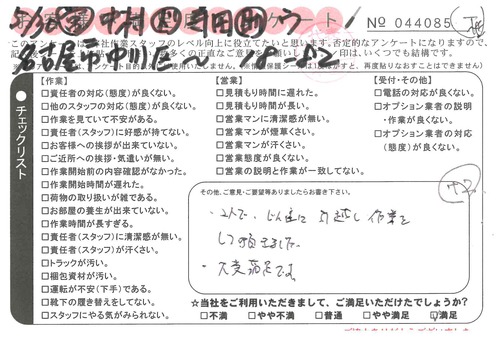 No 044085
このアンケートは
社作業スタッフのレベル向上に役立てたいと思います。否定的なアンケートになりますので、
名古屋市中川区
【作業】
□責任者の対応(態度)が良くない。
□他のスタッフの対応(態度)が良くない。
□作業を見ていて不安がある。
□責任者(スタッフ)に好感が持てない。
□お客様への挨拶が出来ていない。
□ご近所への挨拶・気遣いが無い。
□作業開始前の内容確認がなかった。
□作業開始時間が遅れた。
□荷物の取り扱いが雑である。
□お部屋の養生が出来ていない。
□作業時間が長すぎる。
□責任者(スタッフ)に清潔感が無い。
□責任者(スタッフ)が汗くさい。
□トラックが汚い。
□梱包資材が汚い。
□運転が不安(下手)である。
□靴下の履き替えをしてない。
□スタッフにやる気がみられない。
【営業】
□見積もり時間に遅れた。
□見積もり時間が長い。
□営業マンに清潔感が無い。
□営業マンが煙草くさい。
□営業マンが汗くさい。
□営業態度が良くない。
□営業の説明と作業が一致してない。
【受付・その他】
□電話の対応が良くない。
□オプション業者の説明
・作業が良くない。
□オプション業者の対応
(態度)が良くない。
チェックリスト
その他、ご意見・ご要望等ありましたらお書き下さい。
引越し作業を
・大変満足です。
☆当社をご利用いただきまして、ご満足いただけたでしょうか?
□不満 □やや不満 □普通 □やや満足 ☑満足